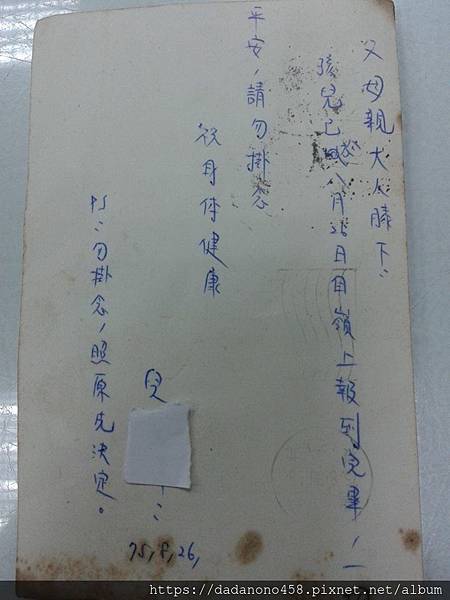 父母親大人膝下：
孩兒已於八月26日自嶺上報到完畢，一
平安，請勿掛念
祝身体健康
兒
75,8,26,
PS：勿掛念，照原先決定。
https://dadanono458.pixnet.net/album